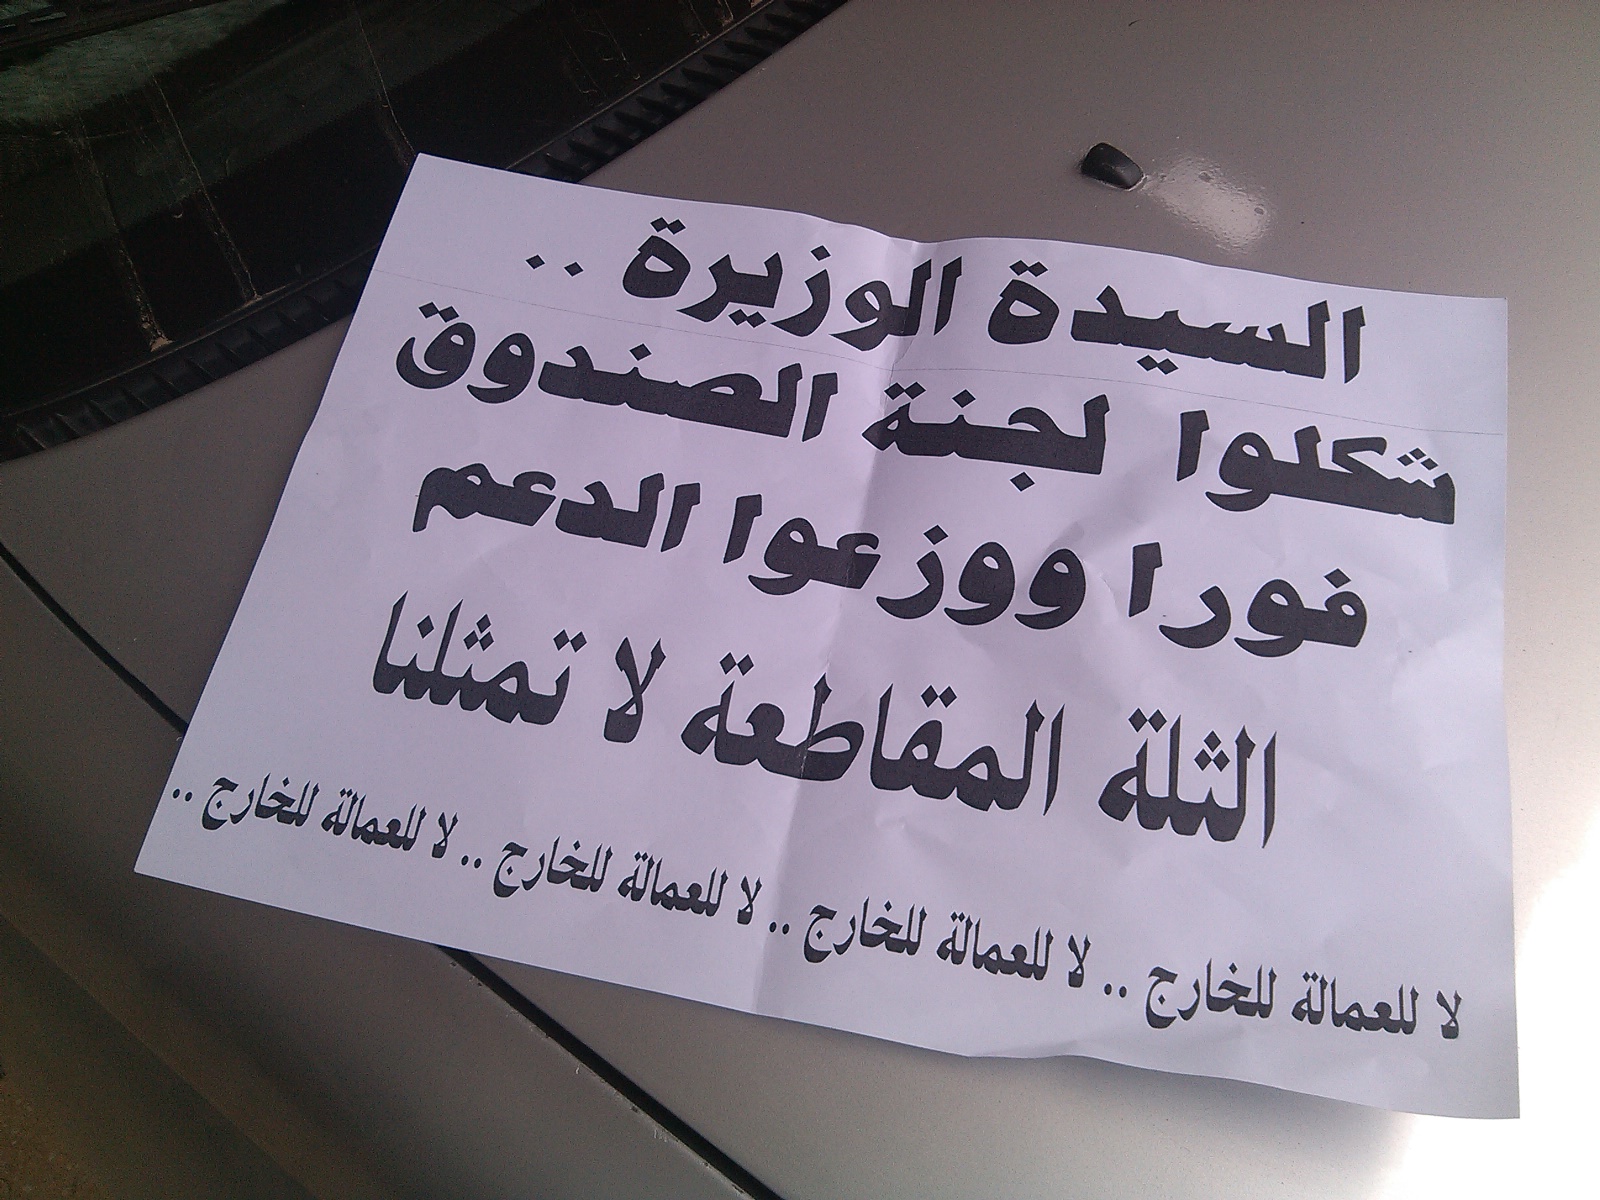 السيدة الوزيرة ..
شكلوا لجنة الصندوق
فورا ووزعوا الدعم
الثلة المقاطعة لا تمثلنا
لا للعمالة للخارج .. لا للعمالة للخارج .. لا للعمالة للخارج .. لا للعمالة للخارج ..